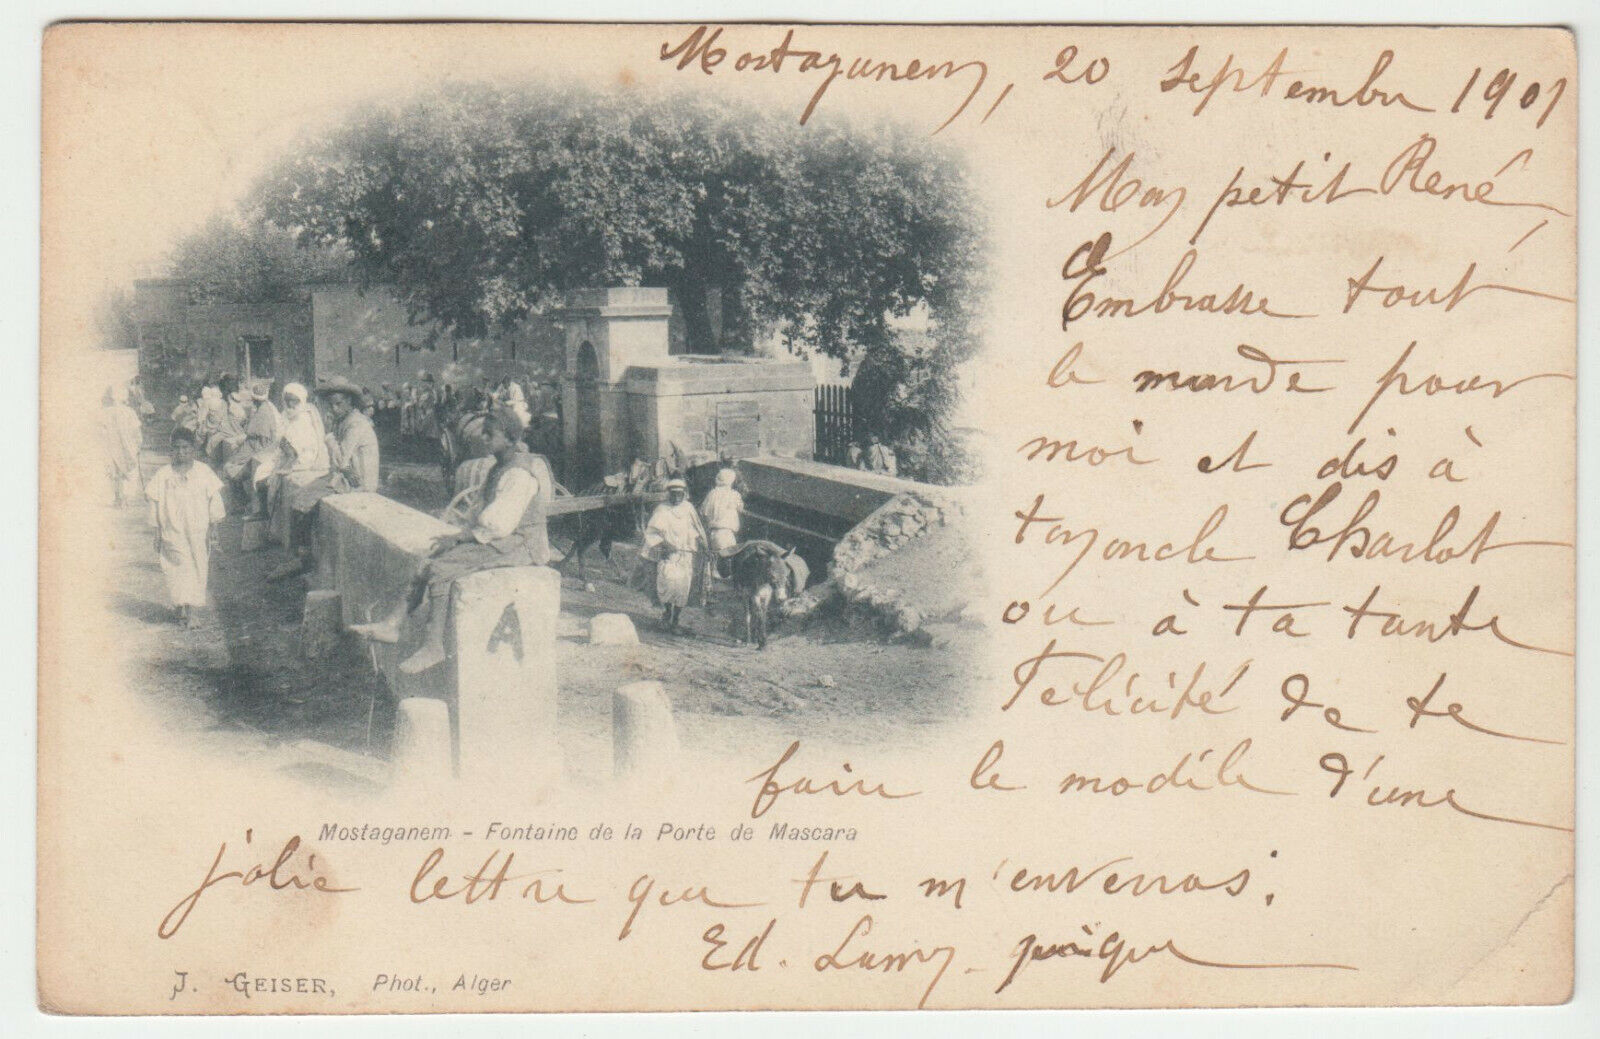 Mostaganem, 20 septembre 1901
Mon petit René,
Embrasse tout
le monde pour
moi et dis à
ton oncle Charlot
ou à ta tante
Félicité de te
faire le modèle d'une
jolie lettre que tu m'enverras.
Ed. Lamy
A
Mostaganem - Fontaine de la Porte de Mascara
J. GEISER, Phot., Alger